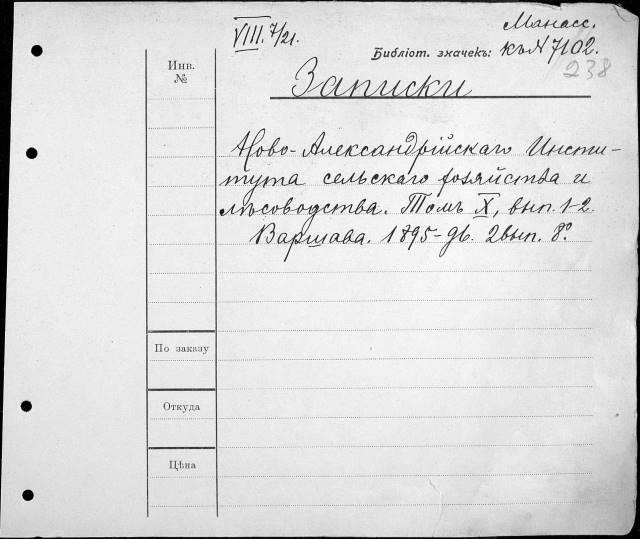 VIII. 7/21.
Манасс.
Библіот. значекъ: къ N 7102.
238
Записки
Инв.
№
Ново-Александрійскаго Инсти-
тута сельскаго хозяйства и
лѣсоводства. Томъ X, вып. 1-2.
Варшава. 1895-96. 2 вып. 8º.
По заказу
Откуда
Цѣна